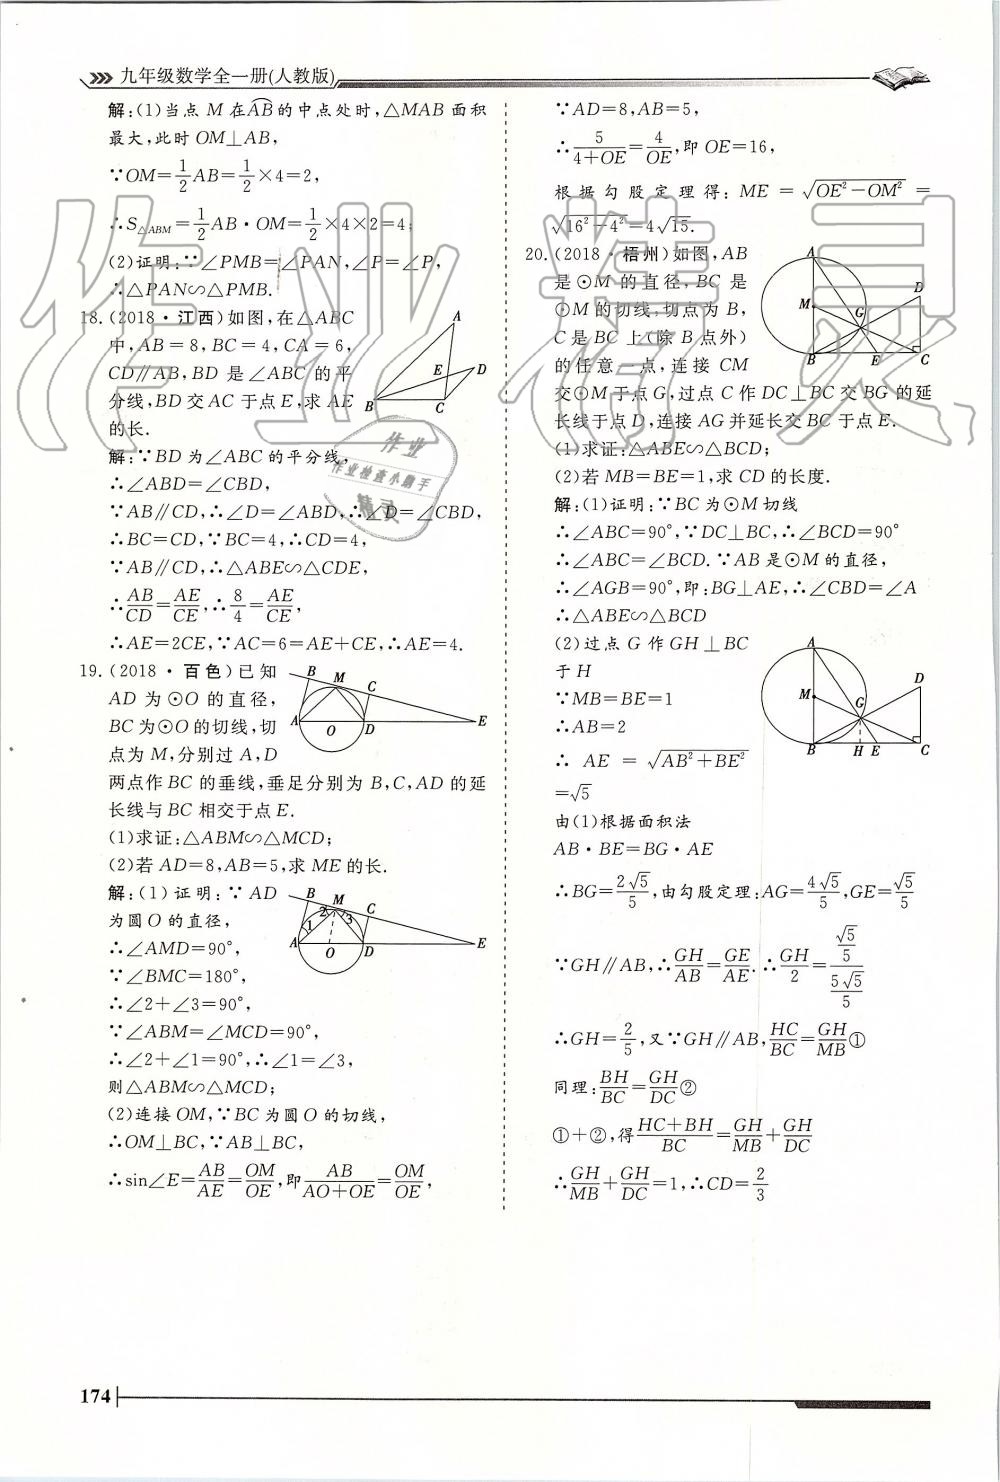 九年级数学全一册(人教版)
解:(1)当点 M 在AB的中点处时,△MAB 面积
最大,此时 OM⊥AB,
∵OM=1/2AB=1/2×4=2,
∴S△ABM=1/2AB·OM=1/2×4×2=4;
(2)证明:∵∠PMB=∠PAN,∠P=∠P,
∴△PAN∽△PMB.
18.(2018·江西)如图,在△ABC
中,AB=8,BC=4,CA=6,
CD∥AB,BD 是∠ABC 的平
分线,BD 交 AC 于点 E,求 AE
的长.
A
E D
B C
解:∵BD 为∠ABC 的平分线,
∴∠ABD=∠CBD,
∵AB∥CD,∴∠D=∠ABD,∴∠D=∠CBD,
∴BC=CD,∵BC=4,∴CD=4,
∵AB∥CD,∴△ABE∽△CDE,
∴AB/CD=AE/CE,∴8/4=AE/CE,
∴AE=2CE,∵AC=6=AE+CE,∴AE=4.
19.(2018·百色)已知
AD 为⊙O 的直径,
BC 为⊙O 的切线,切
点为 M,分别过 A,D
两点作 BC 的垂线,垂足分别为 B,C,AD 的延
长线与 BC 相交于点 E.
B M C
A O D E
(1)求证:△ABM∽△MCD;
(2)若 AD=8,AB=5,求 ME 的长.
解:(1)证明:∵AD
为圆 O 的直径,
∴∠AMD=90°,
∵∠BMC=180°,
∴∠2+∠3=90°,
B M C
1 2 3
A O D E
∵∠ABM=∠MCD=90°,
∴∠2+∠1=90°,∴∠1=∠3,
则△ABM∽△MCD;
(2)连接 OM,∵BC 为圆 O 的切线,
∴OM⊥BC,∵AB⊥BC,
∴sin∠E=AB/AE=OM/OE,即AB/(AO+OE)=OM/OE,
∵AD=8,AB=5,
∴5/(4+OE)=4/OE,即 OE=16,
根据勾股定理得:ME=√(OE²-OM²)=
√(16²-4²)=4√15.
20.(2018·梧州)如图,AB
是⊙M 的直径,BC 是
⊙M 的切线,切点为 B,
C 是 BC 上(除 B 点外)
的任意一点,连接 CM
交⊙M 于点 G,过点 C 作 DC⊥BC 交 BG 的延
长线于点 D,连接 AG 并延长交 BC 于点 E.
A
D
M G
B E C
(1)求证:△ABE∽△BCD;
(2)若 MB=BE=1,求 CD 的长度.
解:(1)证明:∵BC 为⊙M 切线
∴∠ABC=90°,∵DC⊥BC,∴∠BCD=90°
∴∠ABC=∠BCD.∵AB 是⊙M 的直径,
∴∠AGB=90°,即:BG⊥AE,∴∠CBD=∠A
∴△ABE∽△BCD
(2)过点 G 作 GH⊥BC
于 H
∵MB=BE=1
∴AB=2
∴AE=√(AB²+BE²)
=√5
A
D
M G
B H E C
由(1)根据面积法
AB·BE=BG·AE
∴BG=2√5/5,由勾股定理:AG=4√5/5,GE=√5/5
∵GH∥AB,∴GH/AB=GE/AE.∴GH/2=(√5/5)/(5√5/5)
∴GH=2/5,又∵GH∥AB,HC/BC=GH/MB①
同理:BH/BC=GH/DC②
①+②,得(HC+BH)/BC=GH/MB+GH/DC
∴GH/MB+GH/DC=1,∴CD=2/3
作业精灵
作业
作业检查小助手
精灵
174